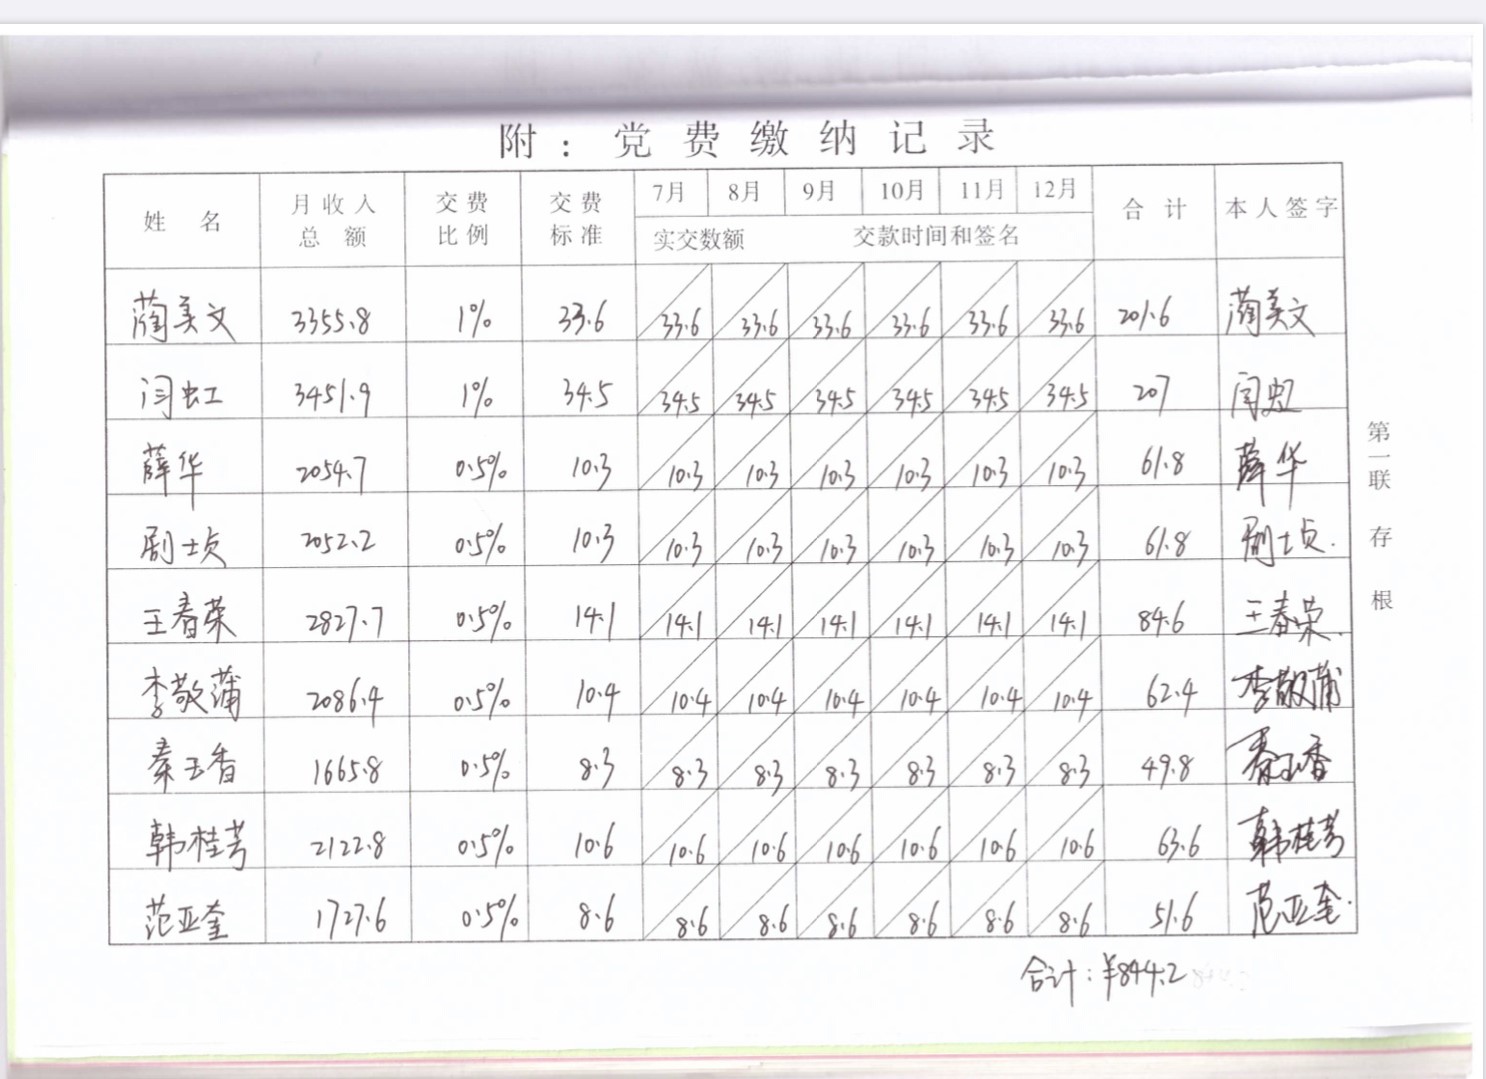 附：党费缴纳记录
姓 名 月收入总额 交费比例 交费标准 7月 8月 9月 10月 11月 12月 合计 本人签字
实交数额 交款时间和签名
蔺美文 3355.8 1% 33.6 33.6 33.6 33.6 33.6 33.6 33.6 201.6 蔺美文
闫虹 3451.9 1% 34.5 34.5 34.5 34.5 34.5 34.5 34.5 207 闫虹
薛华 2054.7 0.5% 10.3 10.3 10.3 10.3 10.3 10.3 10.3 61.8 薛华
剧士贞 2052.2 0.5% 10.3 10.3 10.3 10.3 10.3 10.3 10.3 61.8 剧士贞
王春荣 2827.7 0.5% 14.1 14.1 14.1 14.1 14.1 14.1 14.1 84.6 王春荣
李敬蒲 2086.4 0.5% 10.4 10.4 10.4 10.4 10.4 10.4 10.4 62.4 李敬蒲
秦玉香 1665.8 0.5% 8.3 8.3 8.3 8.3 8.3 8.3 8.3 49.8 秦玉香
韩桂芳 2122.8 0.5% 10.6 10.6 10.6 10.6 10.6 10.6 10.6 63.6 韩桂芳
范亚奎 1727.6 0.5% 8.6 8.6 8.6 8.6 8.6 8.6 8.6 51.6 范亚奎
合计：¥844.2
第一联 存根